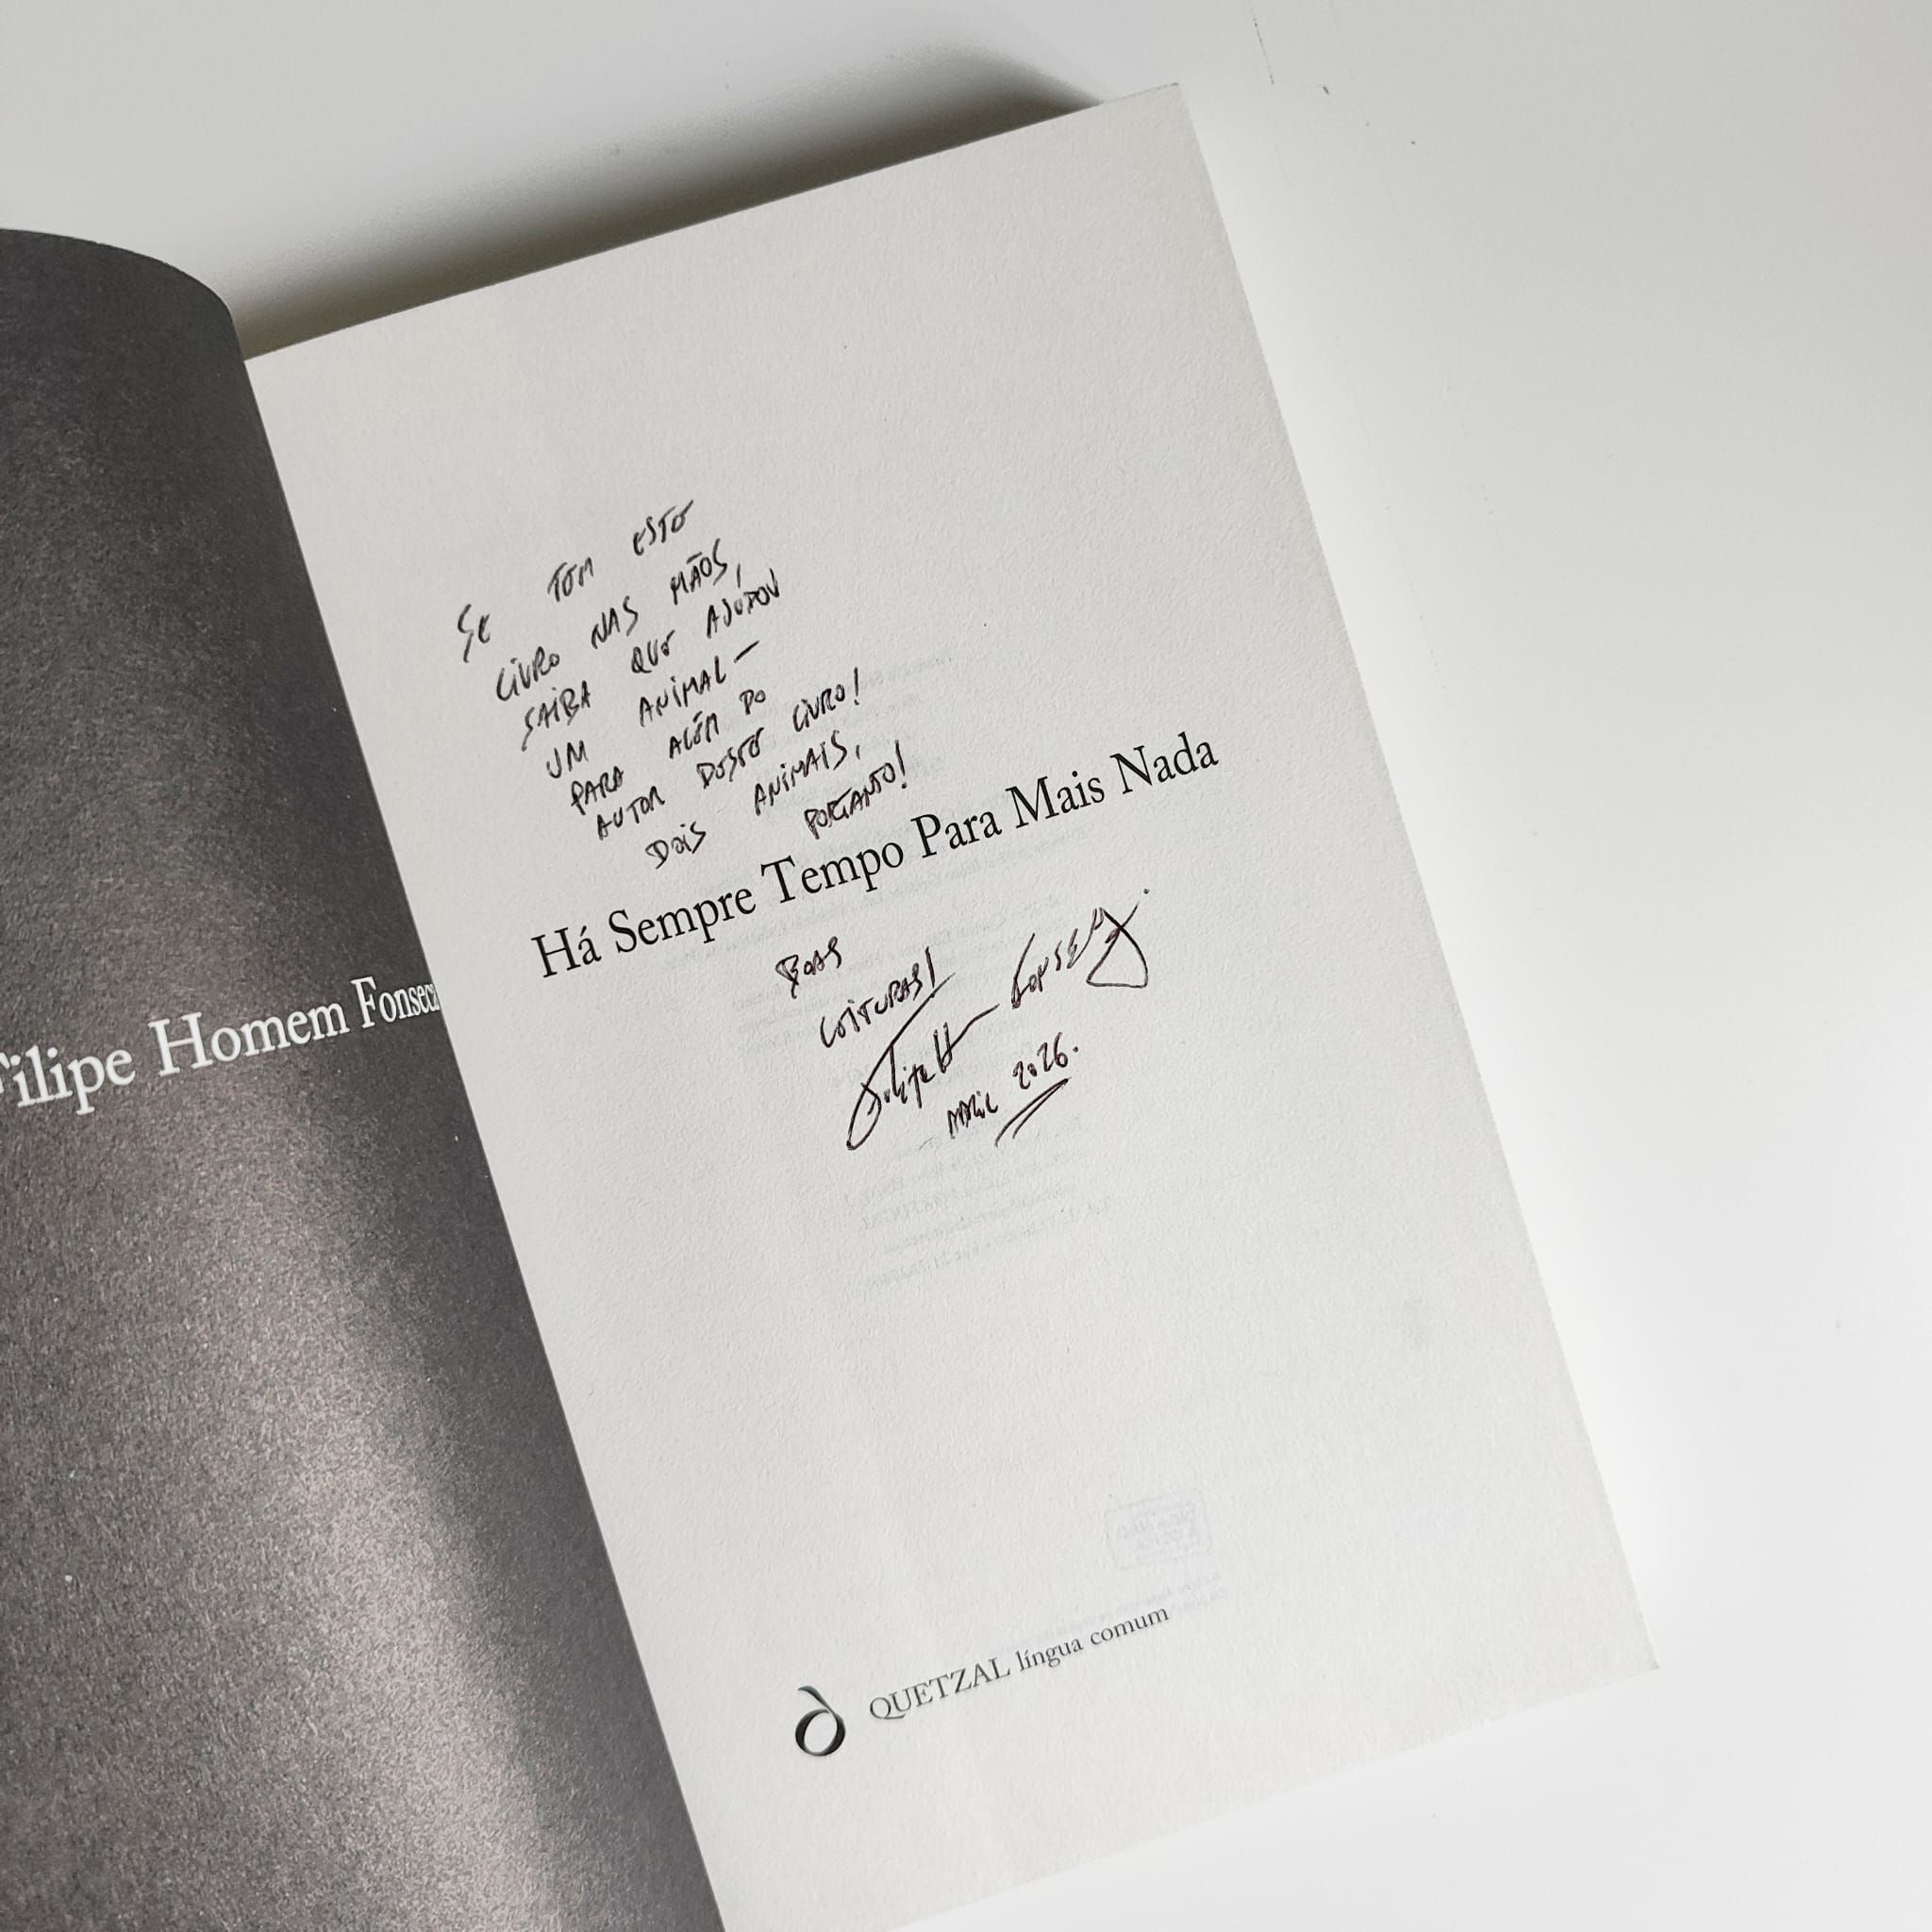 SE TEM ESTE
LIVRO NAS MÃOS,
SAIBA QUE AJUDOU
UM ANIMAL —
PARA ALÉM DO
AUTOR DESTE LIVRO!
DOIS ANIMAIS,
PORTANTO!
Há Sempre Tempo Para Mais Nada
BOAS
LEITURAS!
Filipe H Fonseca
ABRIL 2026.
Filipe Homem Fonseca
QUETZAL língua comum